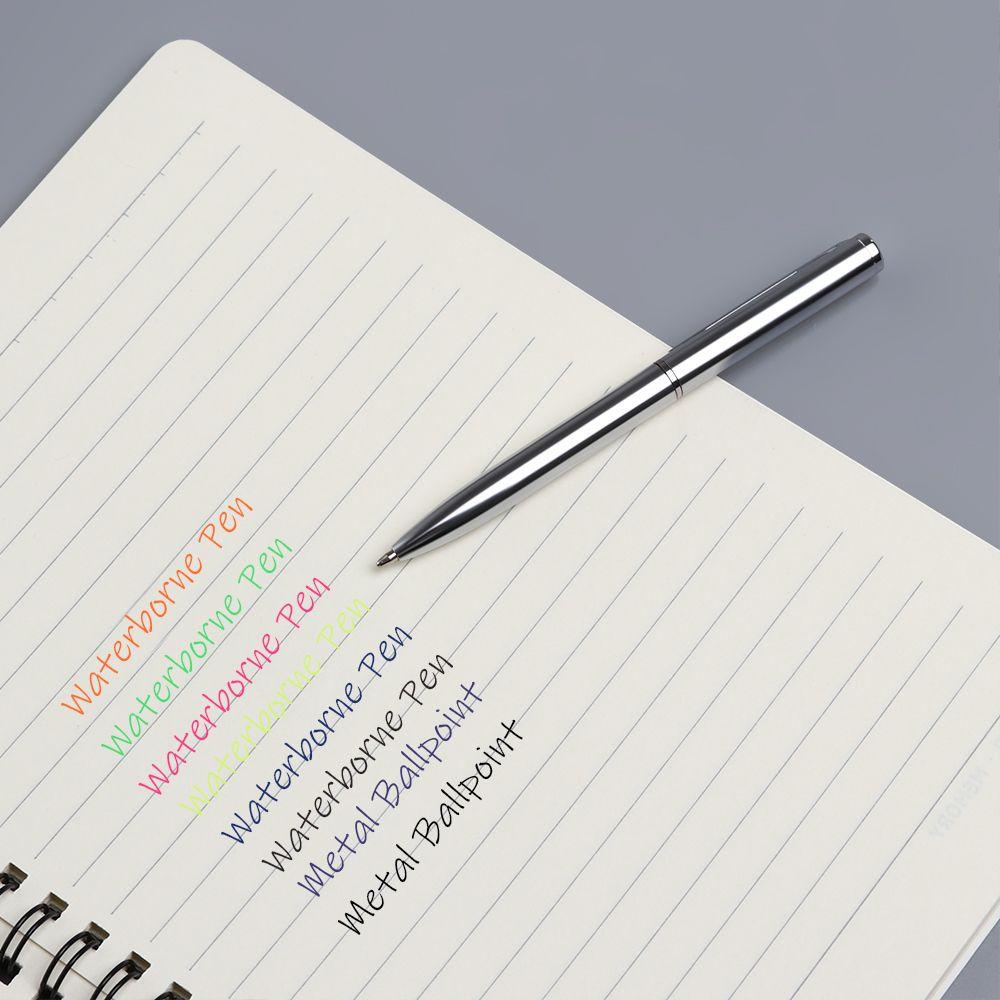 Waterborne Pen
Waterborne Pen
Waterborne Pen
Waterborne Pen
Waterborne Pen
Waterborne Pen
Metal Ballpoint
Metal Ballpoint
MEMORY